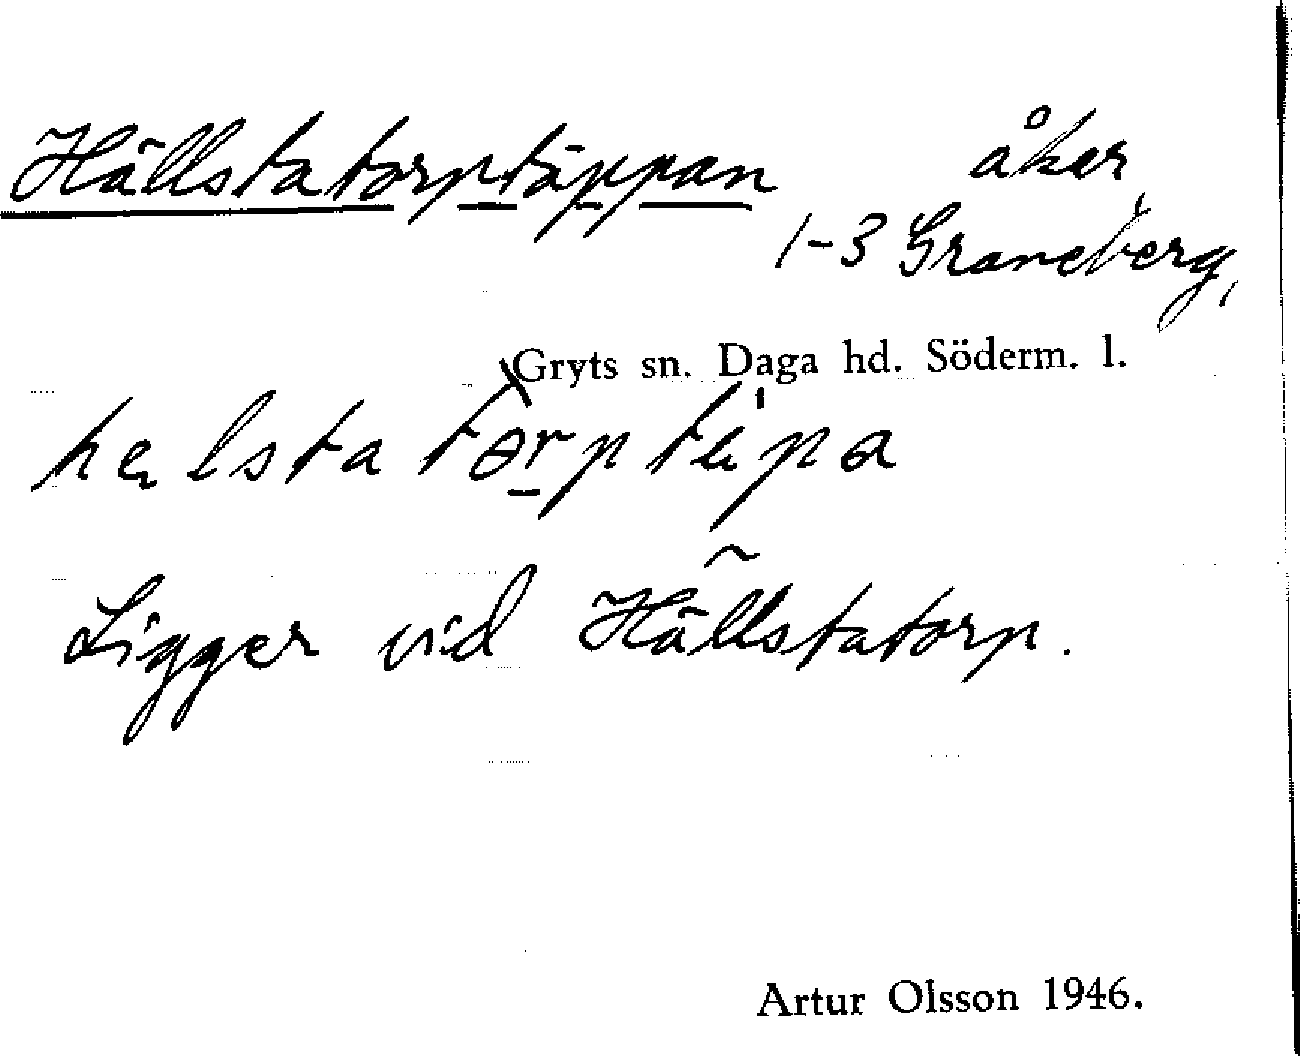 Hällstatorptäppan åker
1-3 Graneberg,
Gryts sn. Daga hd. Söderm. l.
Ligger vid Hällstatorp.
Artur Olsson 1946.